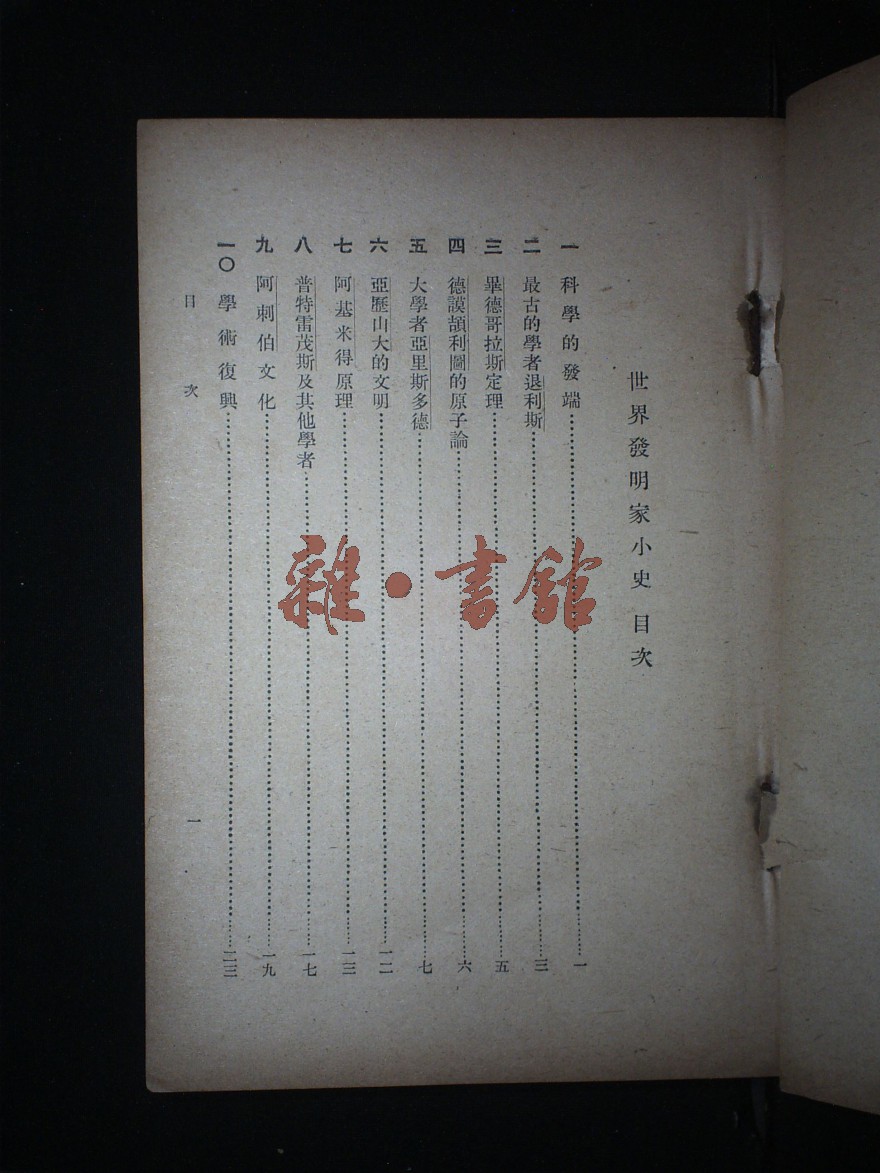 世界發明家小史 目次
一 科學的發端……一
二 最古的學者退利斯……三
三 畢德哥拉斯定理……五
四 德謨頡利圖的原子論……六
五 大學者亞里斯多德……七
六 亞歷山大的文明……一二
七 阿基米得原理……一三
八 普特雷茂斯及其他學者……一七
九 阿剌伯文化……一九
一〇 學術復興……二三
目次 一
雜·書館